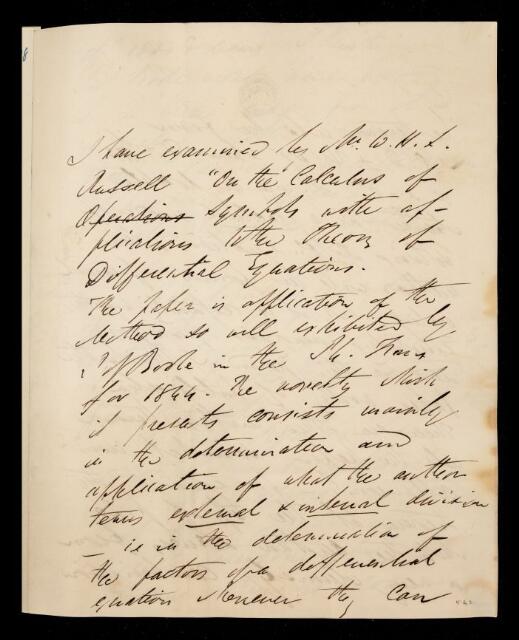 I have examined by Mr. W. H. L.
Russell "On the Calculus of
Operations Symbols with ap-
plications to the Theory of
Differential Equations.
The paper is application of the
Method so well exhibited by
Boole in the Ph. Trans
for 1844. The novelty which
it presents consists mainly
in the determination and
application of what the author
terms external & internal division
– ie in the determination of
the factors of a differential
equation whenever they can